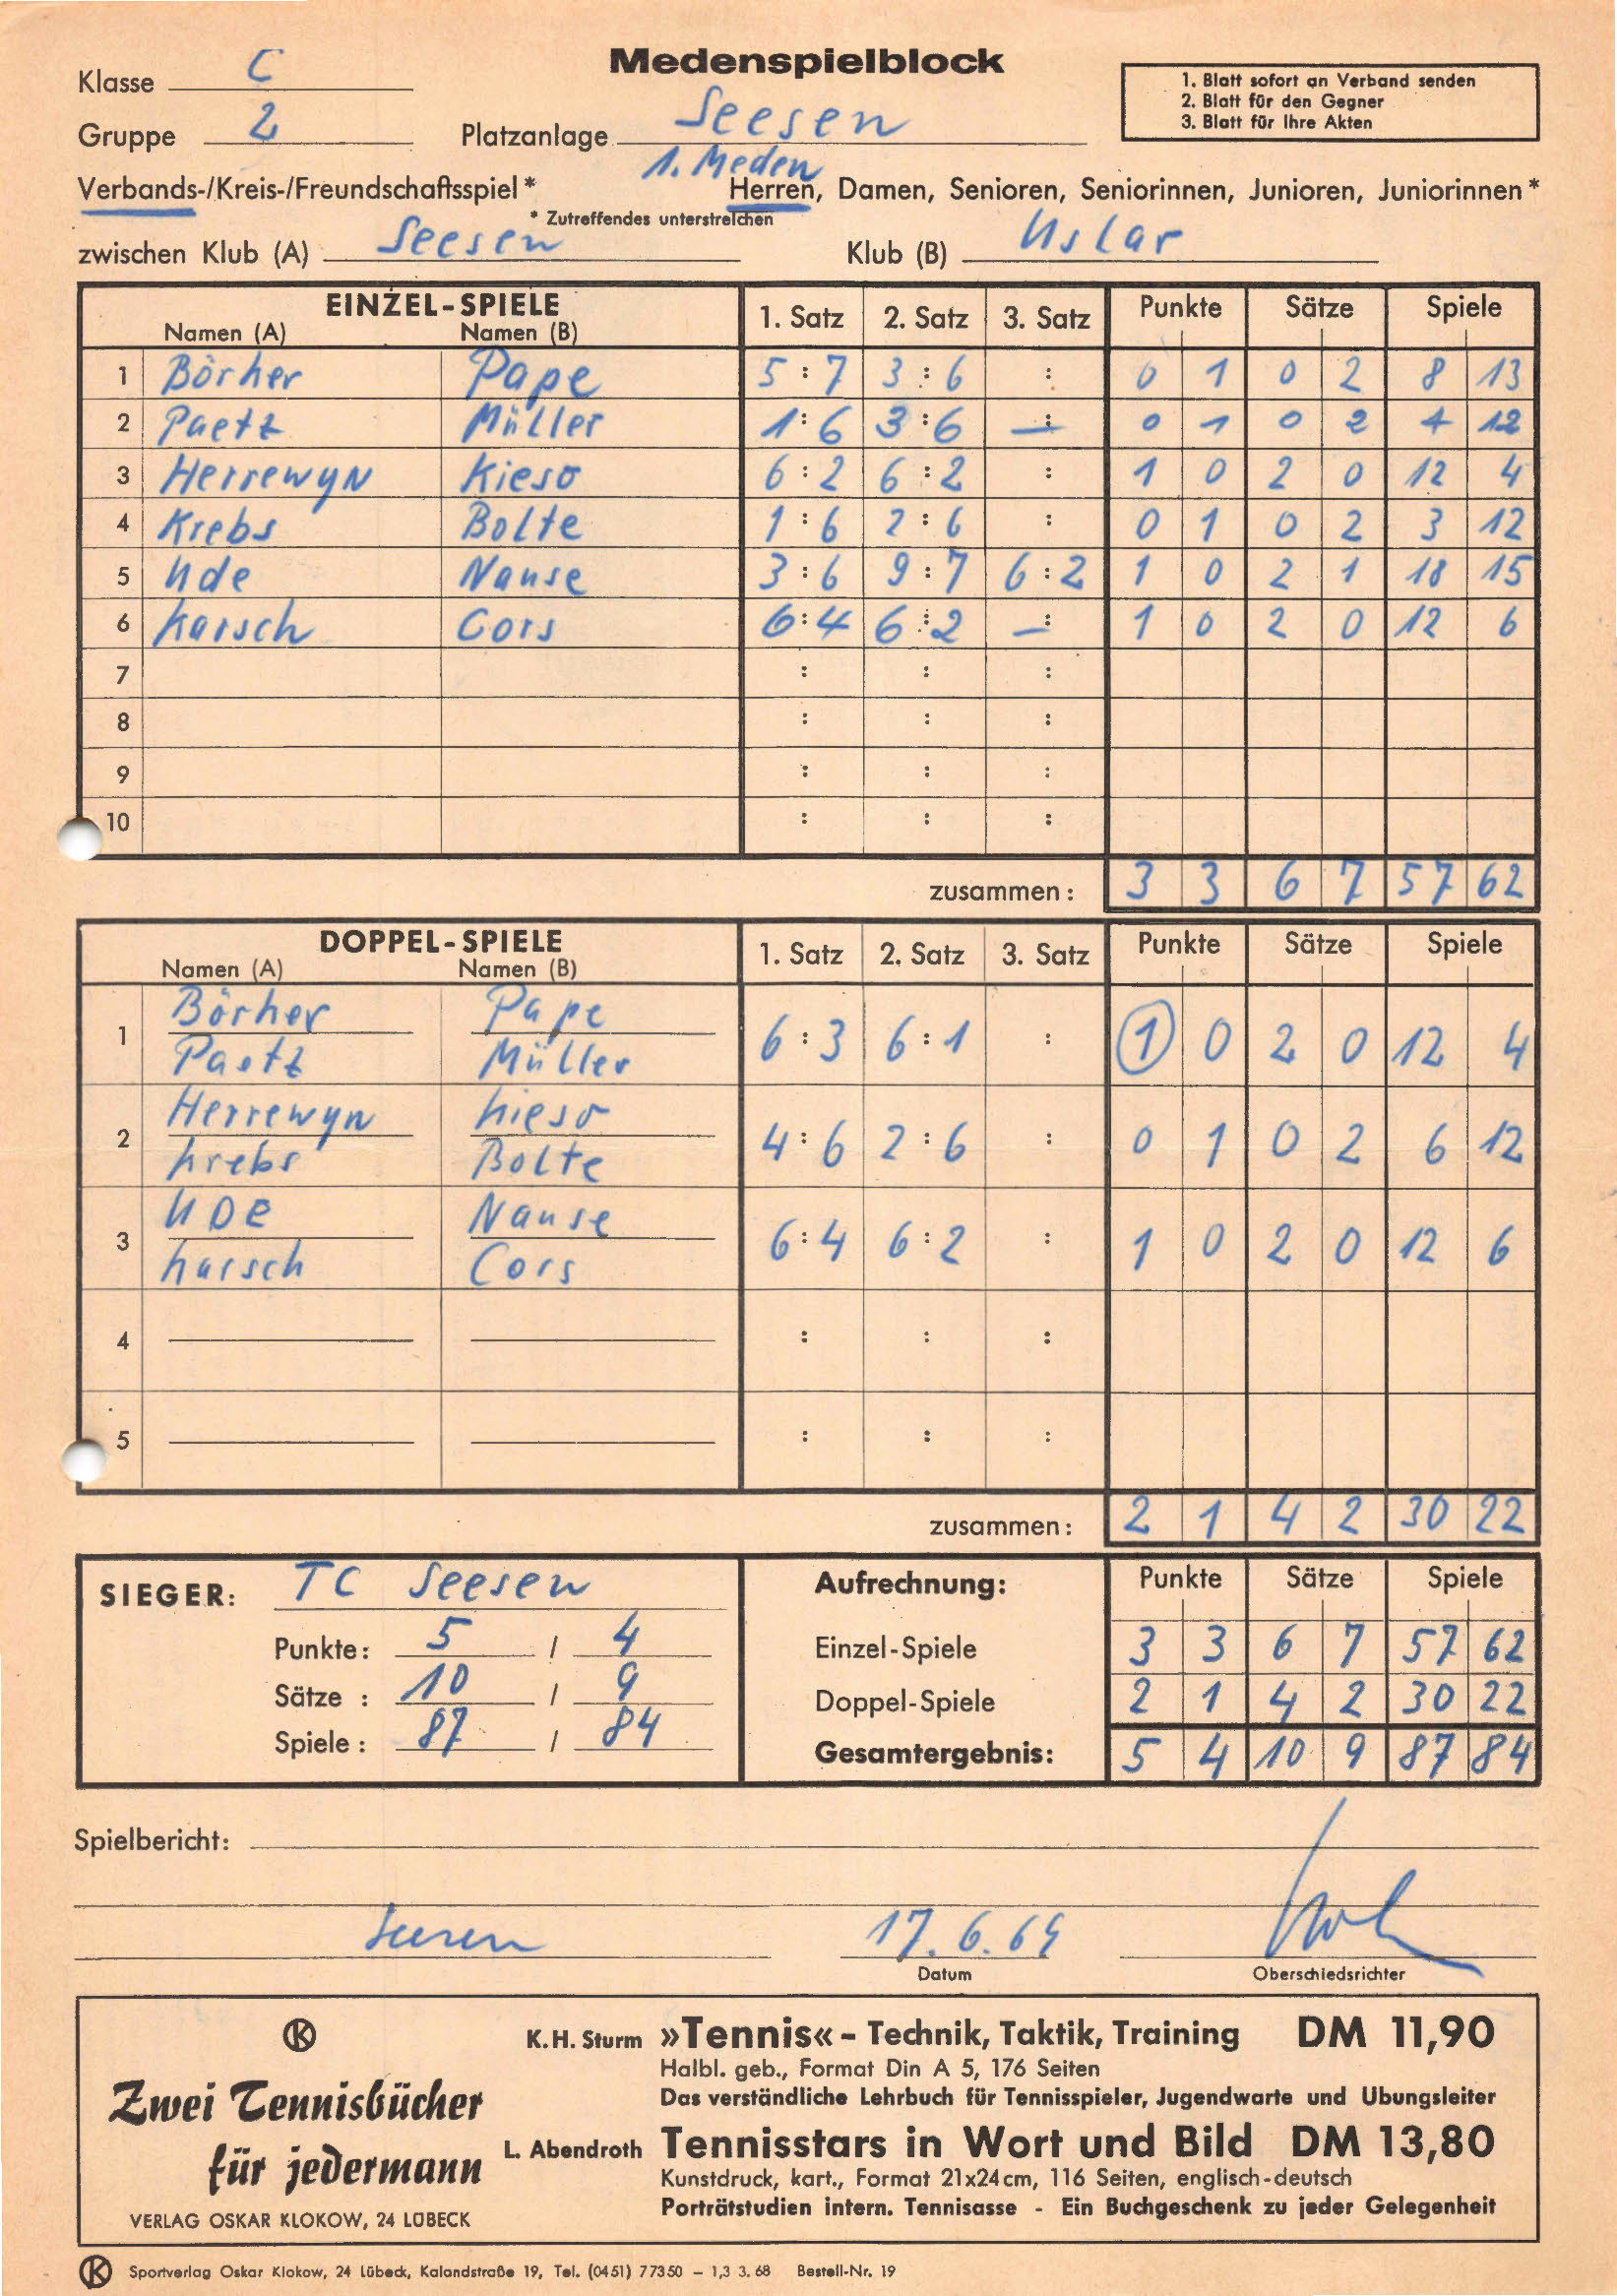 Medenspielblock
Klasse C
1. Blatt sofort an Verband senden
2. Blatt für den Gegner
3. Blatt für Ihre Akten
Gruppe 2 Platzanlage Seesen
1. Meden
Verbands-/Kreis-/Freundschaftsspiel* Herren, Damen, Senioren, Seniorinnen, Junioren, Juniorinnen*
* Zutreffendes unterstreichen
zwischen Klub (A) Seesen Klub (B) Uslar
EINZEL-SPIELE 1. Satz 2. Satz 3. Satz Punkte Sätze Spiele
Namen (A) Namen (B)
1 Börker Pape 5:7 3:6 : 0 1 0 2 8 13
2 Paetz Müller 1:6 3:6 –:– 0 1 0 2 4 12
3 Herrewyn Kieso 6:2 6:2 : 1 0 2 0 12 4
4 Krebs Bolte 1:6 2:6 : 0 1 0 2 3 12
5 Ude Nause 3:6 9:7 6:2 1 0 2 1 18 15
6 Karsch Cors 6:4 6:2 –:– 1 0 2 0 12 6
7 : : :
8 : : :
9 : : :
10 : : :
zusammen: 3 3 6 7 57 62
DOPPEL-SPIELE 1. Satz 2. Satz 3. Satz Punkte Sätze Spiele
Namen (A) Namen (B)
Börker Pape
1 6:3 6:1 : 1 0 2 0 12 4
Paetz Müller
Herrewyn Kieso
2 4:6 2:6 : 0 1 0 2 6 12
Krebs Bolte
UDE Nause
3 6:4 6:2 : 1 0 2 0 12 6
Karsch Cors
4 : : :
5 : : :
zusammen: 2 1 4 2 30 22
SIEGER: TC Seesen
Punkte: 5 / 4
Sätze : 10 / 9
Spiele : 87 / 84
Aufrechnung: Punkte Sätze Spiele
Einzel-Spiele 3 3 6 7 57 62
Doppel-Spiele 2 1 4 2 30 22
Gesamtergebnis: 5 4 10 9 87 84
Spielbericht:
Seesen 17.6.69
Datum Oberschiedsrichter
K
Zwei Tennisbücher
für jedermann
VERLAG OSKAR KLOKOW, 24 LÜBECK
K. H. Sturm »Tennis« – Technik, Taktik, Training DM 11,90
Halbl. geb., Format Din A 5, 176 Seiten
Das verständliche Lehrbuch für Tennisspieler, Jugendwarte und Übungsleiter
L. Abendroth Tennisstars in Wort und Bild DM 13,80
Kunstdruck, kart., Format 21x24cm, 116 Seiten, englisch-deutsch
Porträtstudien intern. Tennisasse - Ein Buchgeschenk zu jeder Gelegenheit
K Sportverlag Oskar Klokow, 24 Lübeck, Kalandstraße 19, Tel. (0451) 77350 – 1,3 3. 68 Bestell-Nr. 19